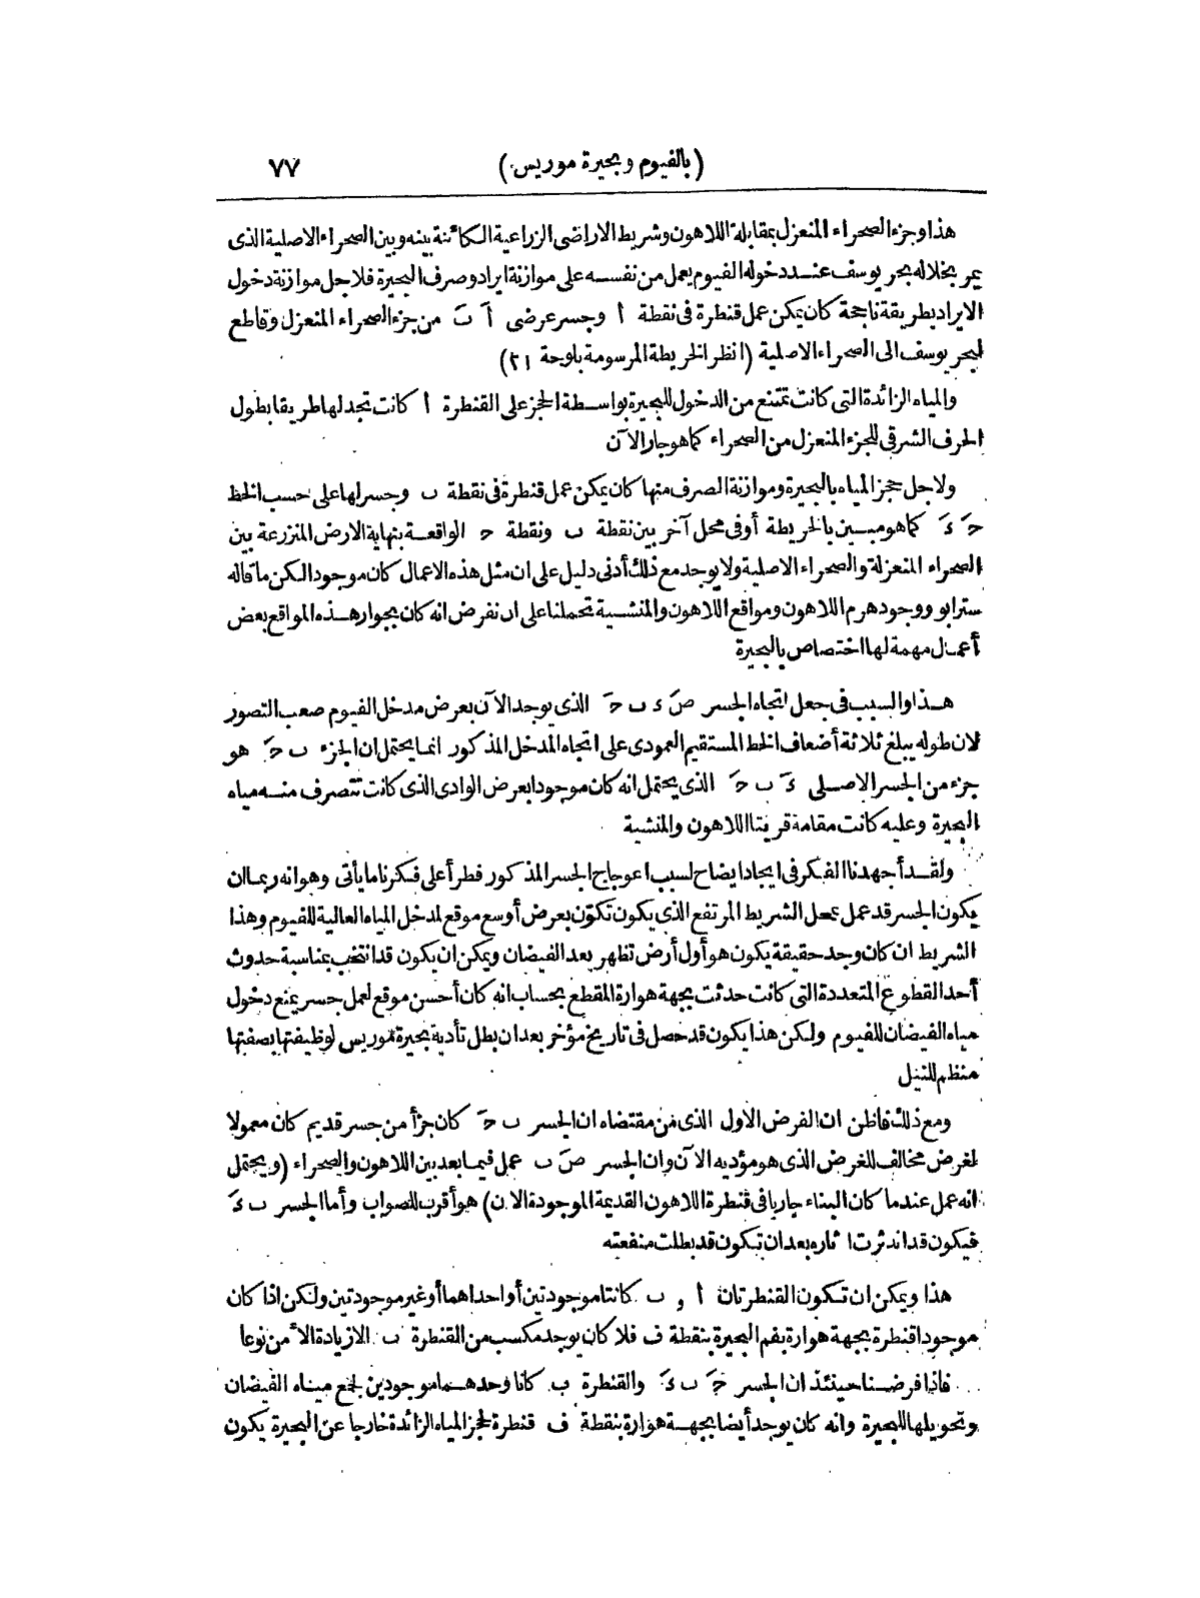 (بالفيوم وبحيرة موريس) ٧٧
هذا وجزء الصحراء المنعزل بمقابلة اللاهون وشريط الاراضى الزراعية الكائنة بينه وبين الصحراء الاصلية الذى
يمر بخلاله بحر يوسف عند دخوله الفيوم يعمل من نفسه على موازنة ايراد وصرف البحيرة فلاجل موازنة دخول
الايراد بطريقة ناجحة كان يمكن عمل قنطرة فى نقطة أ وجسر عرضى أَ بَ من جزء الصحراء المنعزل وقاطع
لبحر يوسف الى الصحراء الاصلية (انظر الخريطة المرسومة بلوحة ٢١)
والمياه الزائدة التى كانت تمتنع من الدخول للبحيرة بواسطة الحجز على القنطرة أ كانت تجد لها طريقا بطول
الحرف الشرقى للجزء المنعزل من الصحراء كما هو جار الآن
ولاجل حجز المياه بالبحيرة وموازنة الصرف منها كان يمكن عمل قنطرة فى نقطة ب وجسر لها على حسب الخط
حَ ءَ كما هو مبين بالخريطة أو فى محل آخر بين نقطة ب ونقطة ح الواقعة بنهاية الارض المنزرعة بين
الصحراء المنعزلة والصحراء الاصلية ولا يوجد مع ذلك أدنى دليل على ان مثل هذه الاعمال كان موجود الكن ما قاله
سترابو ووجود هرم اللاهون ومواقع اللاهون والمنشية تحملنا على ان نفرض انه كان بجوار هذه المواقع بعض
أعمال مهمة لها اختصاص بالبحيرة
هذا والسبب فى جعل اتجاه الجسر صَ ء ب حَ الذى يوجد الآن بعرض مدخل الفيوم صعب التصور
لان طوله يبلغ ثلاثة أضعاف الخط المستقيم العمودى على اتجاه المدخل المذكور انما يحتمل ان الجزء ب حَ هو
جزء من الجسر الاصلى ءَ ب حَ الذى يحتمل انه كان موجودا بعرض الوادى الذى كانت تتصرف منه مياه
البحيرة وعليه كانت مقامة قريتا اللاهون والمنشية
ولقد أجهدنا الفكر فى ايجاد ايضاح لسبب اعوجاج الجسر المذكور فطرأ على فكرنا ما يأتى وهو انه ربما ان
يكون الجسر قد عمل بمحل الشريط المرتفع الذى يكون تكوّن بعرض أوسع موقع لمدخل المياه العالية للفيوم وهذا
الشريط ان كان وجد حقيقة يكون هو أول أرض تظهر بعد الفيضان ويمكن ان يكون قد انتخب بمناسبة حدوث
أحد القطوع المتعددة التى كانت حدثت بجهة هوارة المقطع بحساب انه كان أحسن موقع لعمل جسر يمنع دخول
مياه الفيضان للفيوم ولكن هذا يكون قد حصل فى تاريخ مؤخر بعد ان بطل تأدية بحيرة موريس لوظيفتها بصفتها
منظم للنيل
ومع ذلك فاظن ان الفرض الاول الذى من مقتضاه ان الجسر ب حَ كان جزأ من جسر قديم كان معمولا
لغرض مخالف للغرض الذى هو مؤديه الآن وان الجسر صَ ب عمل فيما بعد بين اللاهون والصحراء (ويحتمل
انه عمل عندما كان البناء جاريا فى قنطرة اللاهون القديمة الموجودة الان) هو أقرب للصواب وأما الجسر ب ءَ
فيكون قد اندثرت اثاره بعد ان تكون قد بطلت منفعته
هذا ويمكن ان تكون القنطرتان أ , ب كانتا موجودتين أو احداهما أو غير موجودتين ولكن اذا كان
موجودا قنطرة بجهة هوارة بفم البحيرة بنقطة ف فلا كان يوجد مكسب من القنطرة ب الا زيادة الأمن نوعا
فاذا فرضنا حينئذ ان الجسر حَ ب ءَ والقنطرة ب كانا وحدهما موجودين لجمع مياه الفيضان
وتحويلها للبحيرة وانه كان يوجد أيضا بجهة هوارة بنقطة ف قنطرة لحجز المياه الزائدة خارجا عن البحيرة يكون